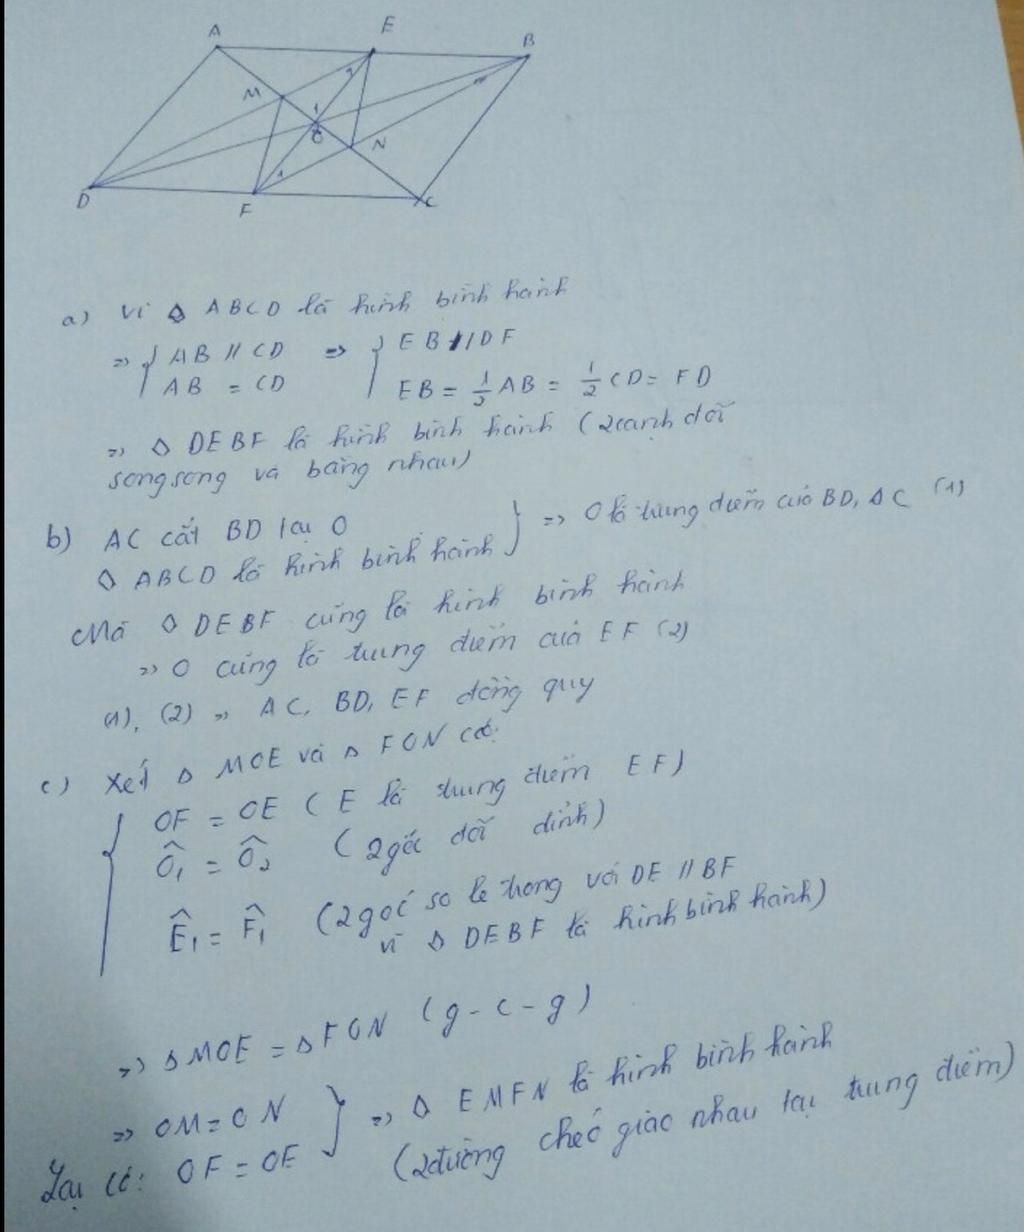 A E B
M
2 1
O N
1
D F C
a) Vì ◊ ABCD là hình bình hành
=> { AB // CD => { EB // DF
AB = CD EB = 1/2 AB = 1/2 CD = FD
=> ◊ DEBF là hình bình hành (2 cạnh đối
song song và bằng nhau)
b) AC cắt BD tại O
◊ ABCD là hình bình hành } => O là trung điểm của BD, AC (1)
Mà ◊ DEBF cũng là hình bình hành
=> O cũng là trung điểm của EF (2)
(1), (2) => AC, BD, EF đồng quy
c) Xét Δ MOE và Δ FON có:
{ OF = OE (E là trung điểm EF)
Ô1 = Ô2 (2 góc đối đỉnh)
Ê1 = F̂1 (2 góc so le trong với DE // BF
vì ◊ DEBF là hình bình hành)
=> Δ MOE = Δ FON (g-c-g)
=> OM = ON } => ◊ EMFN là hình bình hành
Lại có: OF = OE (2 đường chéo giao nhau tại trung điểm)